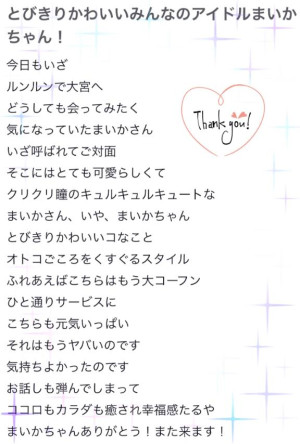 とびきりかわいいみんなのアイドルまいか
ちゃん！
今日もいざ
ルンルンで大宮へ
どうしても会ってみたく
気になっていたまいかさん
いざ呼ばれてご対面
そこにはとても可愛らしくて
クリクリ瞳のキュルキュルキュートな
まいかさん、いや、まいかちゃん
とびきりかわいいコなこと
オトコごころをくすぐるスタイル
ふれあえばこちらはもう大コーフン
ひと通りサービスに
こちらも元気いっぱい
それはもうヤバいのです
気持ちよかったのです
お話しも弾んでしまって
ココロもカラダも癒され幸福感たるや
まいかちゃんありがとう！また来ます！
Thank you!